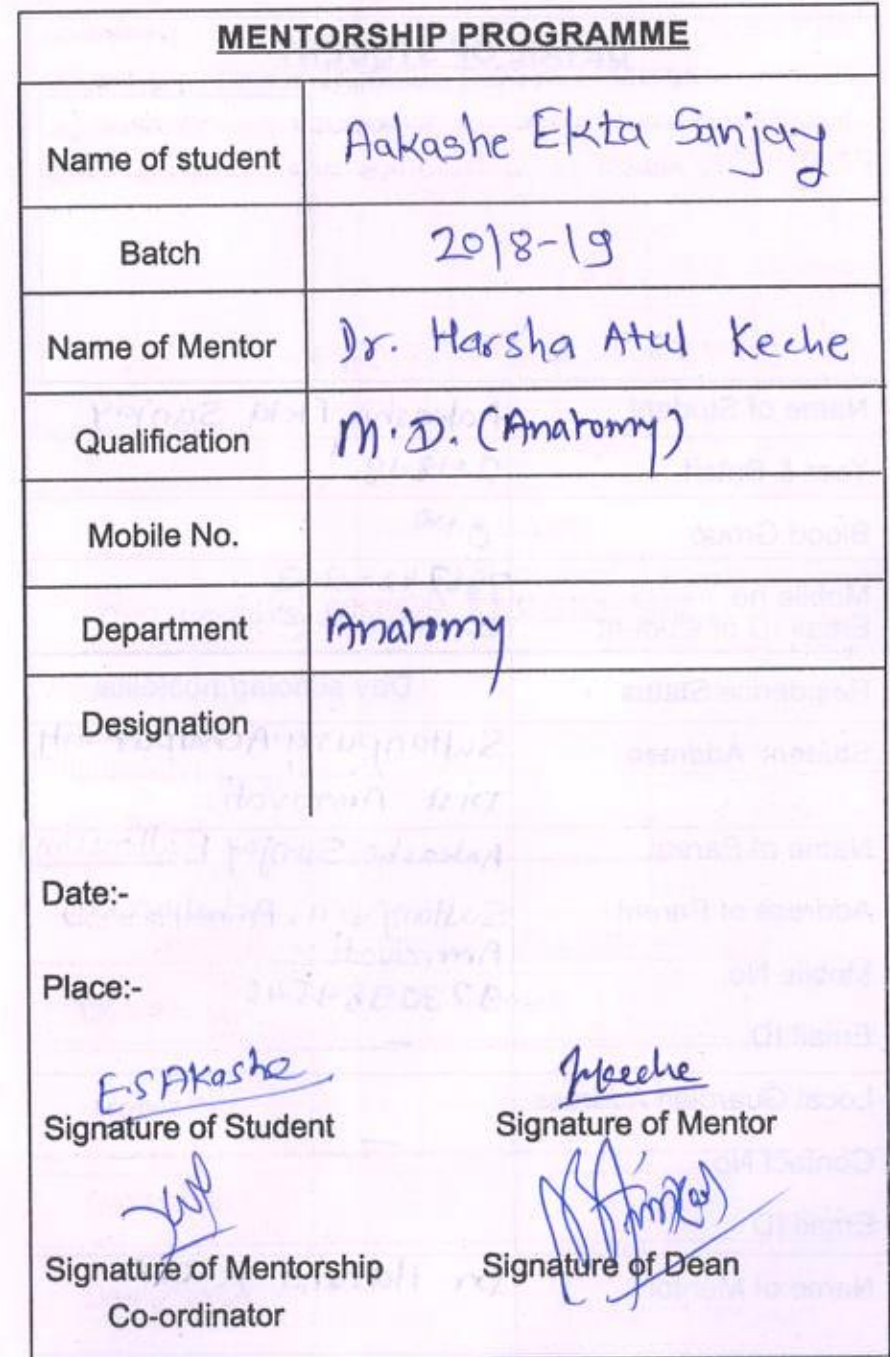 MENTORSHIP PROGRAMME
Name of student Aakashe Ekta Sanjay
Batch 2018-19
Name of Mentor Dr. Harsha Atul Keche
Qualification M.D. (Anatomy)
Mobile No.
Department Anatomy
Designation
Date:-
Place:-
E.S Akashe
Signature of Student Signature of Mentor
Signature of Mentorship Signature of Dean
Co-ordinator